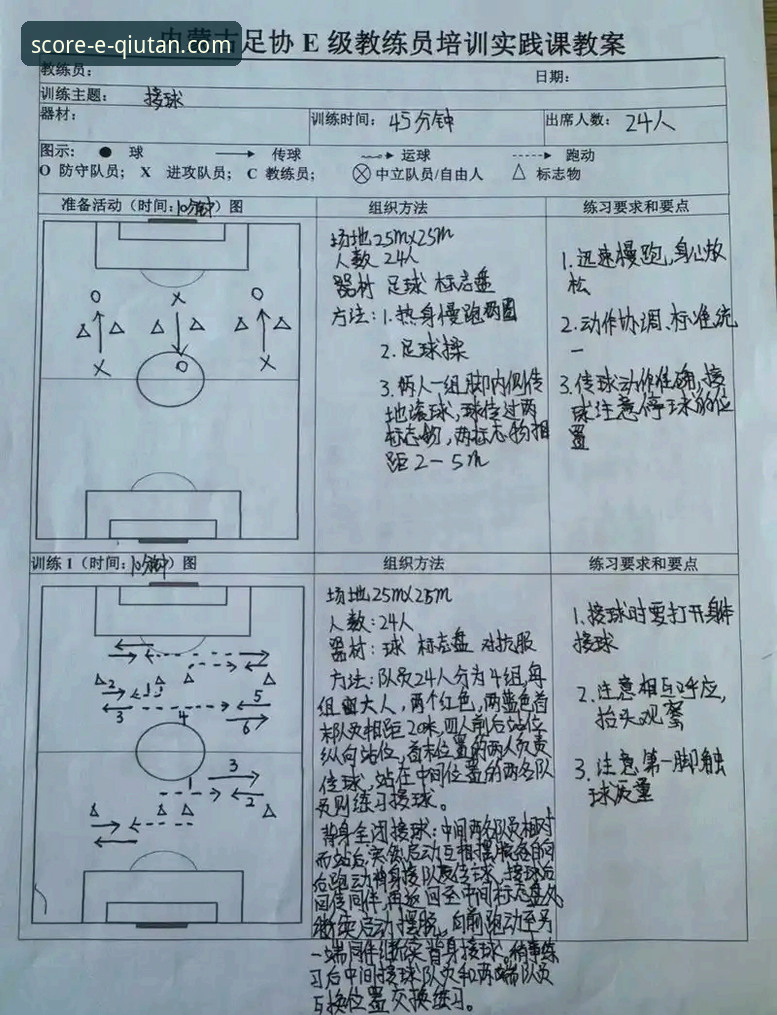 score-e-qiutan.com
内蒙古足协 E 级教练员培训实践课教案
教练员:
日期:
训练主题: 接球
器材:
训练时间: 45分钟
出席人数: 24人
图示: ● 球 → 传球 运球 跑动
O 防守队员; X 进攻队员; C 教练员; 中立队员/自由人 △ 标志物
准备活动 (时间: 10分钟) 图
组织方法
练习要求和要点
场地25m×25m
人数 24人
器材 足球 标志盘
方法: 1. 热身慢跑两圈
2. 足球操
3. 俩人一组脚内侧传
地滚球, 球传过两
标志物, 两标志物相
距2-5m
1. 迅速慢跑,身心放
松
2. 动作协调、标准统
一
3. 传球动作准确,接
球注意停球的位
置
O X O
X O X
训练 1 (时间: 10分钟) 图
组织方法
练习要求和要点
场地25m×25m
人数:24人
器材: 球 标志盘 对抗服
方法: 队员24人分为4组,每
组六人, 两个红色, 两蓝色首
末队员相距20米,四人前后站位
纵向站位,首末位置的两人负责
传球, 站在中间位置的两名队
员则练习接球。
背身全闭接球: 中间两名队员相对
而站后,突然启动互相摆脱各自向
后跑动背身接队友传球, 接球后
回传同伴,再返回至中间标志盘处
继续启动摆脱, 向前跑动至另
一端同伴继续背身接球。稍事练
习后中间接球队员和两端队员
互换位置交换练习。
1. 接球时要打开身体
接球
2. 注意相互呼应,
抬头观察
3. 注意第一脚触
球质量
2 1
5
3 4 6
3
1 2